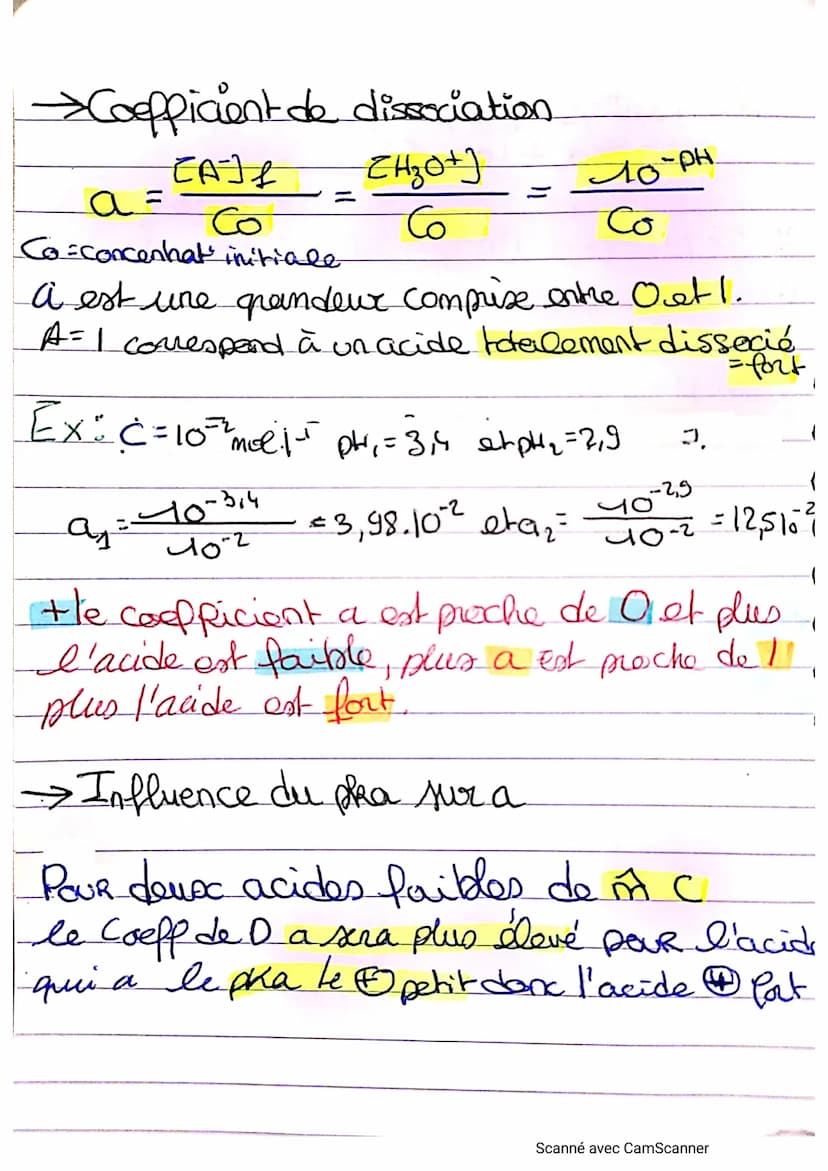 →Coefficient de dissociation
a = [A-]f / Co = [H3O+] / Co = 10-pH / Co
Co = concentrat° initiale
a est une grandeur comprise entre 0 et 1.
A=1 correspond à un acide totalement dissocié
=fort
Ex: C=10-2 mol.l-1 pH1=3,4 et pH2=2,9
a1 = 10-3,4 / 10-2 = 3,98.10-2 et a2= 10-2,9 / 10-2 = 12,5 10-2
+ le coefficient a est proche de 0 et plus
l'acide est faible, plus a est proche de 1
plus l'acide est fort.
→ Influence du pka sur a
Pour deux acides faibles de m̂ C
le Coeff de D a sera plus élevé pour l'acid
qui a le pka le + petit donc l'acide + fort
Scanné avec CamScanner